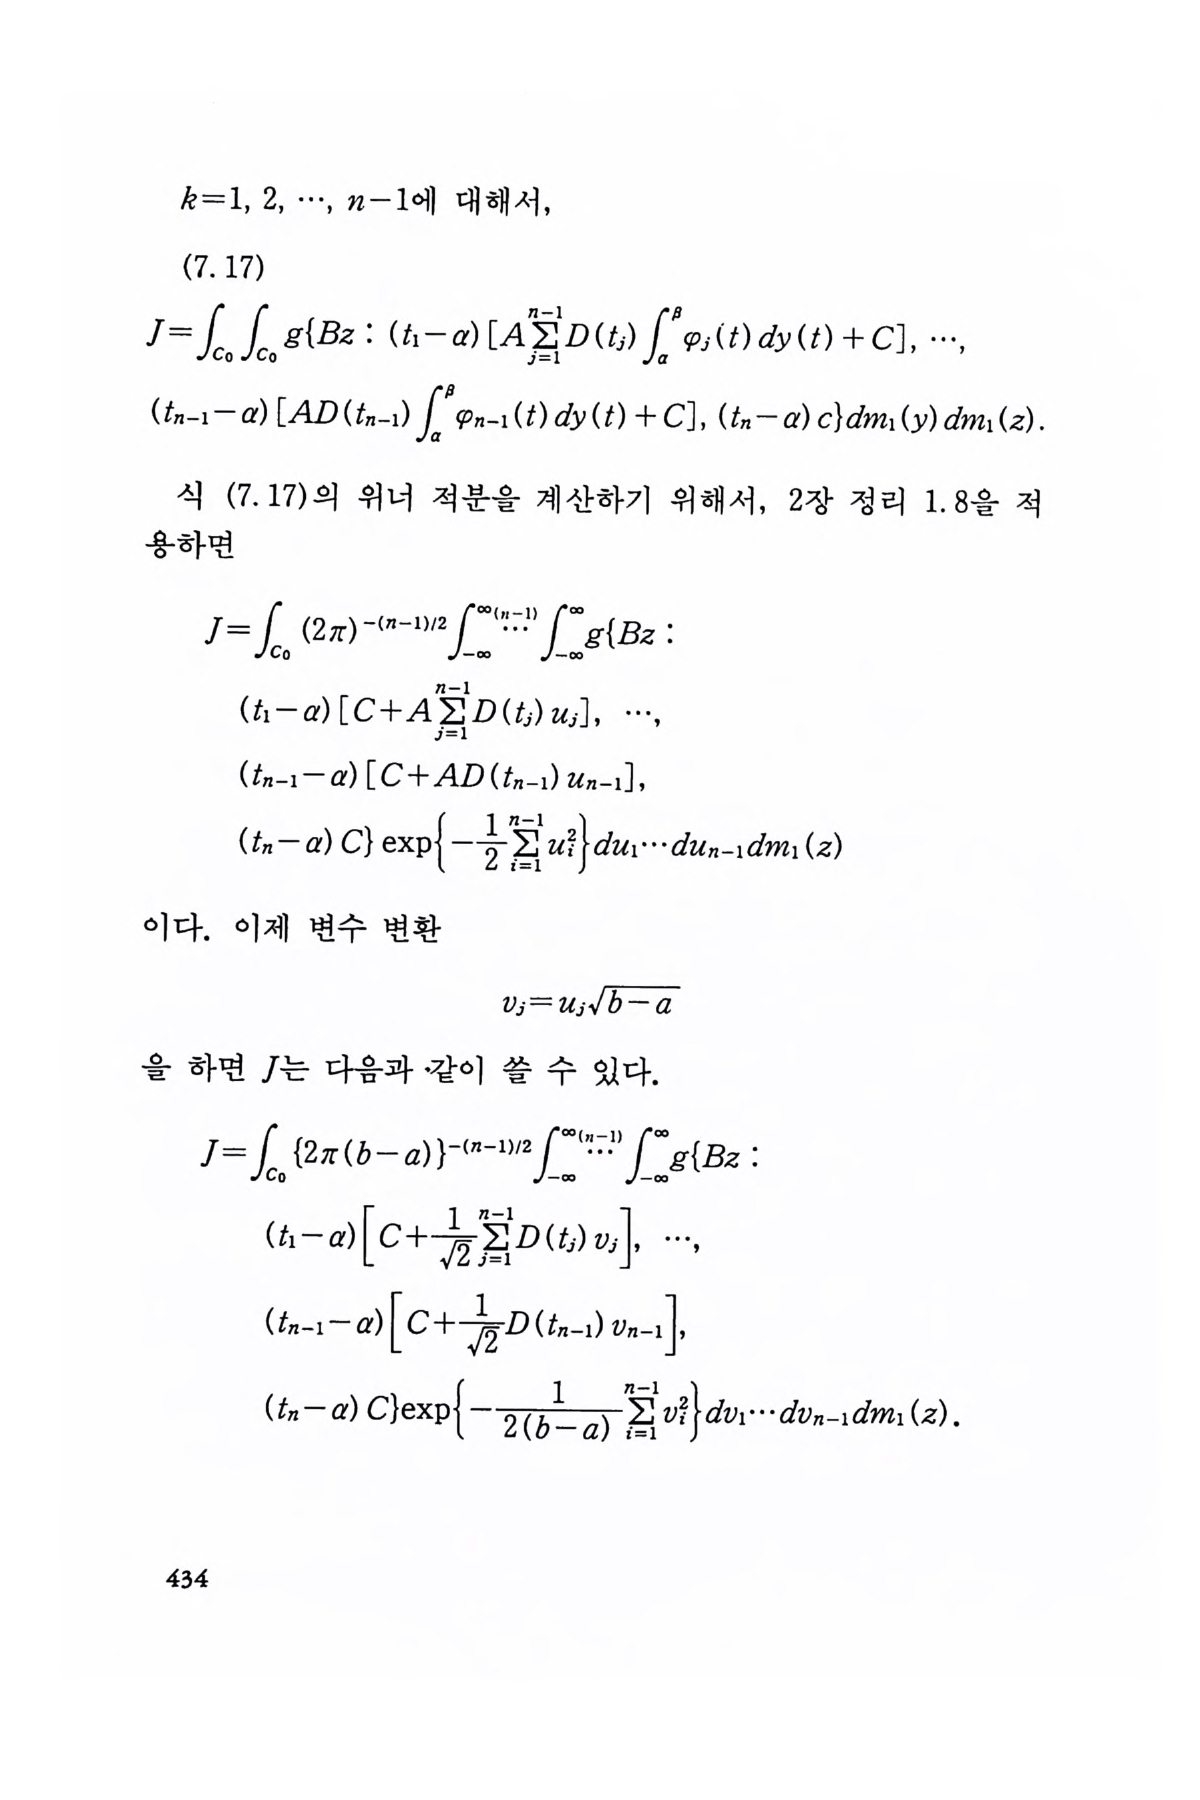 k=1, 2, ⋯, n−1에 대해서,
(7. 17)
J=∫_{C₀}∫_{C₀} g{Bz : (t₁−α)[A∑_{j=1}^{n−1}D(t_j)∫_α^β φ_j(t)dy(t)+C], ⋯,
(t_{n−1}−α)[AD(t_{n−1})∫_α^β φ_{n−1}(t)dy(t)+C], (t_n−α)c}dm₁(y)dm₁(z).
식 (7. 17)의 위너 적분을 계산하기 위해서, 2장 정리 1. 8을 적
용하면
J=∫_{C₀}(2π)^{−(n−1)/2}∫_{−∞}^{∞} ⋯^{(n−1)} ∫_{−∞}^{∞} g{Bz :
(t₁−α)[C+A∑_{j=1}^{n−1}D(t_j)u_j], ⋯,
(t_{n−1}−α)[C+AD(t_{n−1})u_{n−1}],
(t_n−α)C}exp{−\frac{1}{2}∑_{i=1}^{n−1}u_i^2}du₁⋯du_{n−1}dm₁(z)
이다. 이제 변수 변환
v_j=u_j√{b−a}
을 하면 J는 다음과 같이 쓸 수 있다.
J=∫_{C₀}{2π(b−a)}^{−(n−1)/2}∫_{−∞}^{∞} ⋯^{(n−1)} ∫_{−∞}^{∞} g{Bz :
(t₁−α)[C+\frac{1}{√2}∑_{j=1}^{n−1}D(t_j)v_j], ⋯,
(t_{n−1}−α)[C+\frac{1}{√2}D(t_{n−1})v_{n−1}],
(t_n−α)C}exp{−\frac{1}{2(b−a)}∑_{i=1}^{n−1}v_i^2}dv₁⋯dv_{n−1}dm₁(z).
434